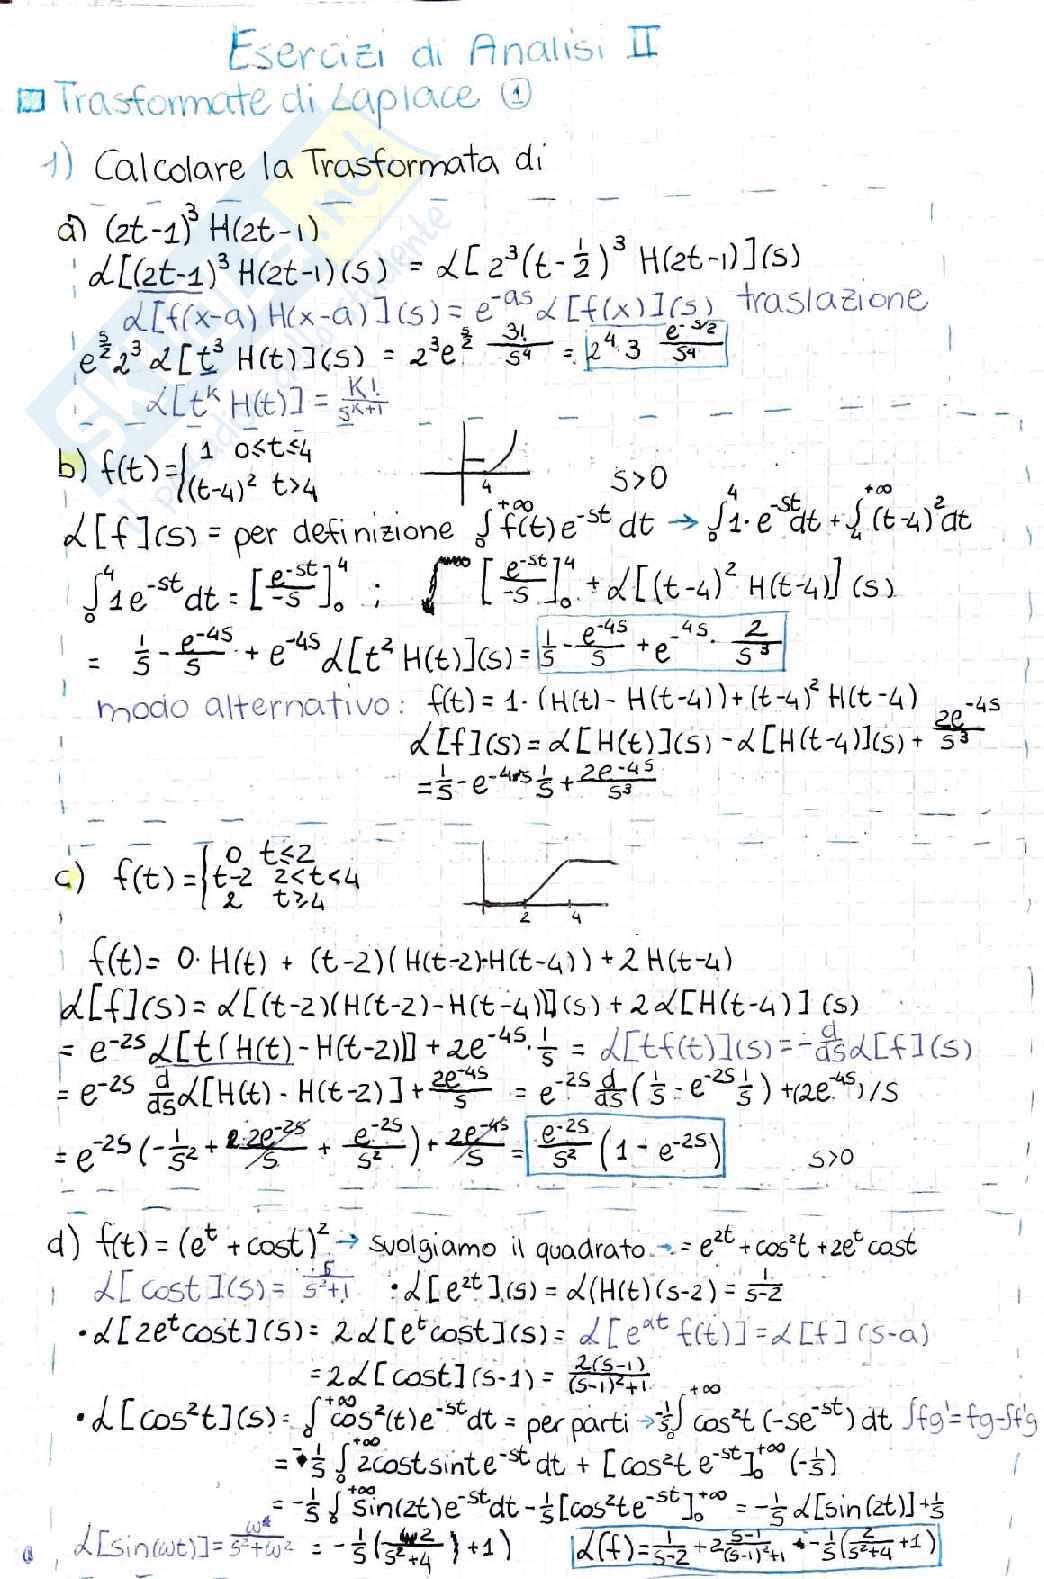 Esercizi di Analisi II
Trasformate di Laplace ①
1) Calcolare la Trasformata di
a) (2t-1)³ H(2t-1)
ℒ[(2t-1)³ H(2t-1)(s) = ℒ[2³(t-1/2)³ H(2t-1)](s)
ℒ[f(x-a) H(x-a)](s) = e^-as ℒ[f(x)](s) traslazione
e^s/2 2³ ℒ[t³ H(t)](s) = 2³e^s/2 3!/s⁴ = 2⁴·3 e^-s/2/s⁴
ℒ[t^k H(t)] = k!/s^k+1
b) f(t) = { 1 0≤t≤4
(t-4)² t>4
4
s>0
ℒ[f](s) = per definizione ∫₀^+∞ f(t)e^-st dt → ∫₀^4 1·e^-st dt + ∫₄^+∞ (t-4)² dt
∫₀^4 1e^-st dt = [e^-st/-s]₀^4 ; [e^-st/-s]₀^4 + ℒ[(t-4)² H(t-4)](s)
= 1/s - e^-4s/s + e^-4s ℒ[t² H(t)](s) = 1/s - e^-4s/s + e^-4s · 2/s³
modo alternativo: f(t) = 1·(H(t) - H(t-4)) + (t-4)² H(t-4)
ℒ[f](s) = ℒ[H(t)](s) - ℒ[H(t-4)](s) + 2e^-4s/s³
= 1/s - e^-4s 1/s + 2e^-4s/s³
c) f(t) = { 0 t≤2
t-2 2<t<4
2 t≥4
2 4
f(t) = 0·H(t) + (t-2)(H(t-2)-H(t-4)) + 2H(t-4)
ℒ[f](s) = ℒ[(t-2)(H(t-2)-H(t-4))](s) + 2ℒ[H(t-4)](s)
= e^-2s ℒ[t(H(t)-H(t-2))] + 2e^-4s · 1/s = ℒ[tf(t)](s) = -d/ds ℒ[f](s)
= e^-2s d/ds ℒ[H(t)-H(t-2)] + 2e^-4s/s = e^-2s d/ds (1/s - e^-2s 1/s) + (2e^-4s)/s
= e^-2s (-1/s² + 2e^-2s/s + e^-2s/s²) + 2e^-4s/s = e^-2s/s² (1 - e^-2s) s>0
d) f(t) = (e^t + cost)² → svolgiamo il quadrato → = e^2t + cos²t + 2e^t cost
ℒ[cost](s) = s/s²+1 · ℒ[e^2t](s) = ℒ(H(t)(s-2) = 1/s-2
· ℒ[2e^t cost](s) = 2ℒ[e^t cost](s) = ℒ[e^at f(t)] = ℒ[f](s-a)
= 2ℒ[cost](s-1) = 2(s-1)/(s-1)²+1
· ℒ[cos²t](s) = ∫₀^+∞ cos²(t)e^-st dt = per parti → -1/s ∫₀^+∞ cos²t (-se^-st) dt ∫fg' = fg - ∫f'g
= -1/s ∫₀^+∞ 2costsint e^-st dt + [cos²t e^-st]₀^+∞ (-1/s)
= -1/s ∫₀^+∞ sin(2t)e^-st dt - 1/s [cos²te^-st]₀^+∞ = -1/s ℒ[sin(2t)] + 1/s
ℒ[sin(ωt)] = ω/s²+ω² = -1/s (2/s²+4) + 1) ℒ(f) = 1/s-2 + 2 s-1/(s-1)²+1 + -1/s (2/s²+4 + 1)